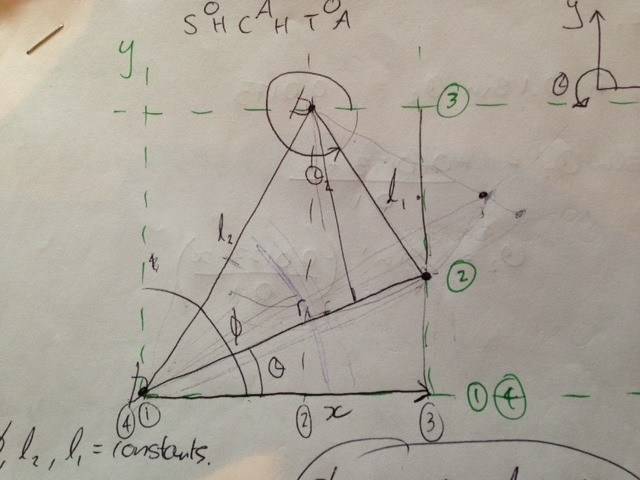 SOHCAHTOA
y
y₁
θ
③
θ₂
l₁
l₂
②
r₁
ϕ
θ
① ④
④ ① ② x ③
l₂, l₁ = constants.